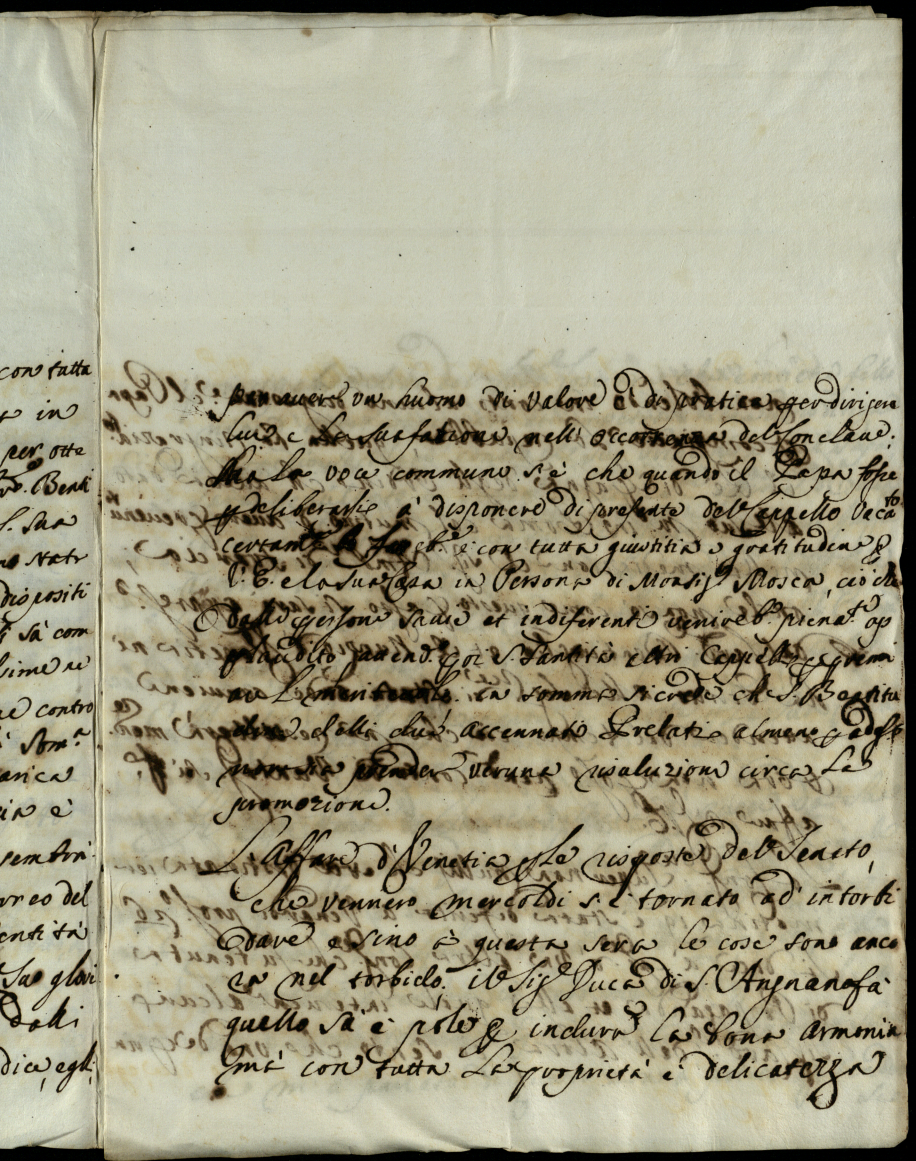 con tutta
in
per otte
Benti
S. Sua
no statr
dispositi
sà com
sime ne
ne contro
Som.ª
arica
ria è
sembri
orreo del
entità
Sue glori
dalli
dice, egli,
per avere un huomo di valore è di pratica per dirigere
lui e la sua fatione nell' occorrenza del Conclave;
Ma la voce commune si è che quando il Papa fosse
p deliberarsi à disponere di presente del Cappello vaca.to
certam.te lo fareb.e e con tutta giustitia e gratitudine p
V. E. e la sua Casa in Persona di Monsig.r Mosca, ciò che
dalle persone savie et indiferenti venireb.e pienam.te ap
plaudito havend. poi S. Santità altri Cappelli p premi
are in somma si crede che S. Beatitu
dine delli due accennati Prelati almeno p adesso
non sia p prender veruna risoluzione circa La
promozione.
L'Affare di Venetia p Le risposte del Senato,
che vennero mercoldi s'è tornato ad' intorbi
dare e sino à questa sera le cose sono anco
ra nel torbido. il Sig.r Duca di S. Angnano fà
quello sà è pole p indurre la bona Armonia
mà con tutta La proprietà è delicatezza